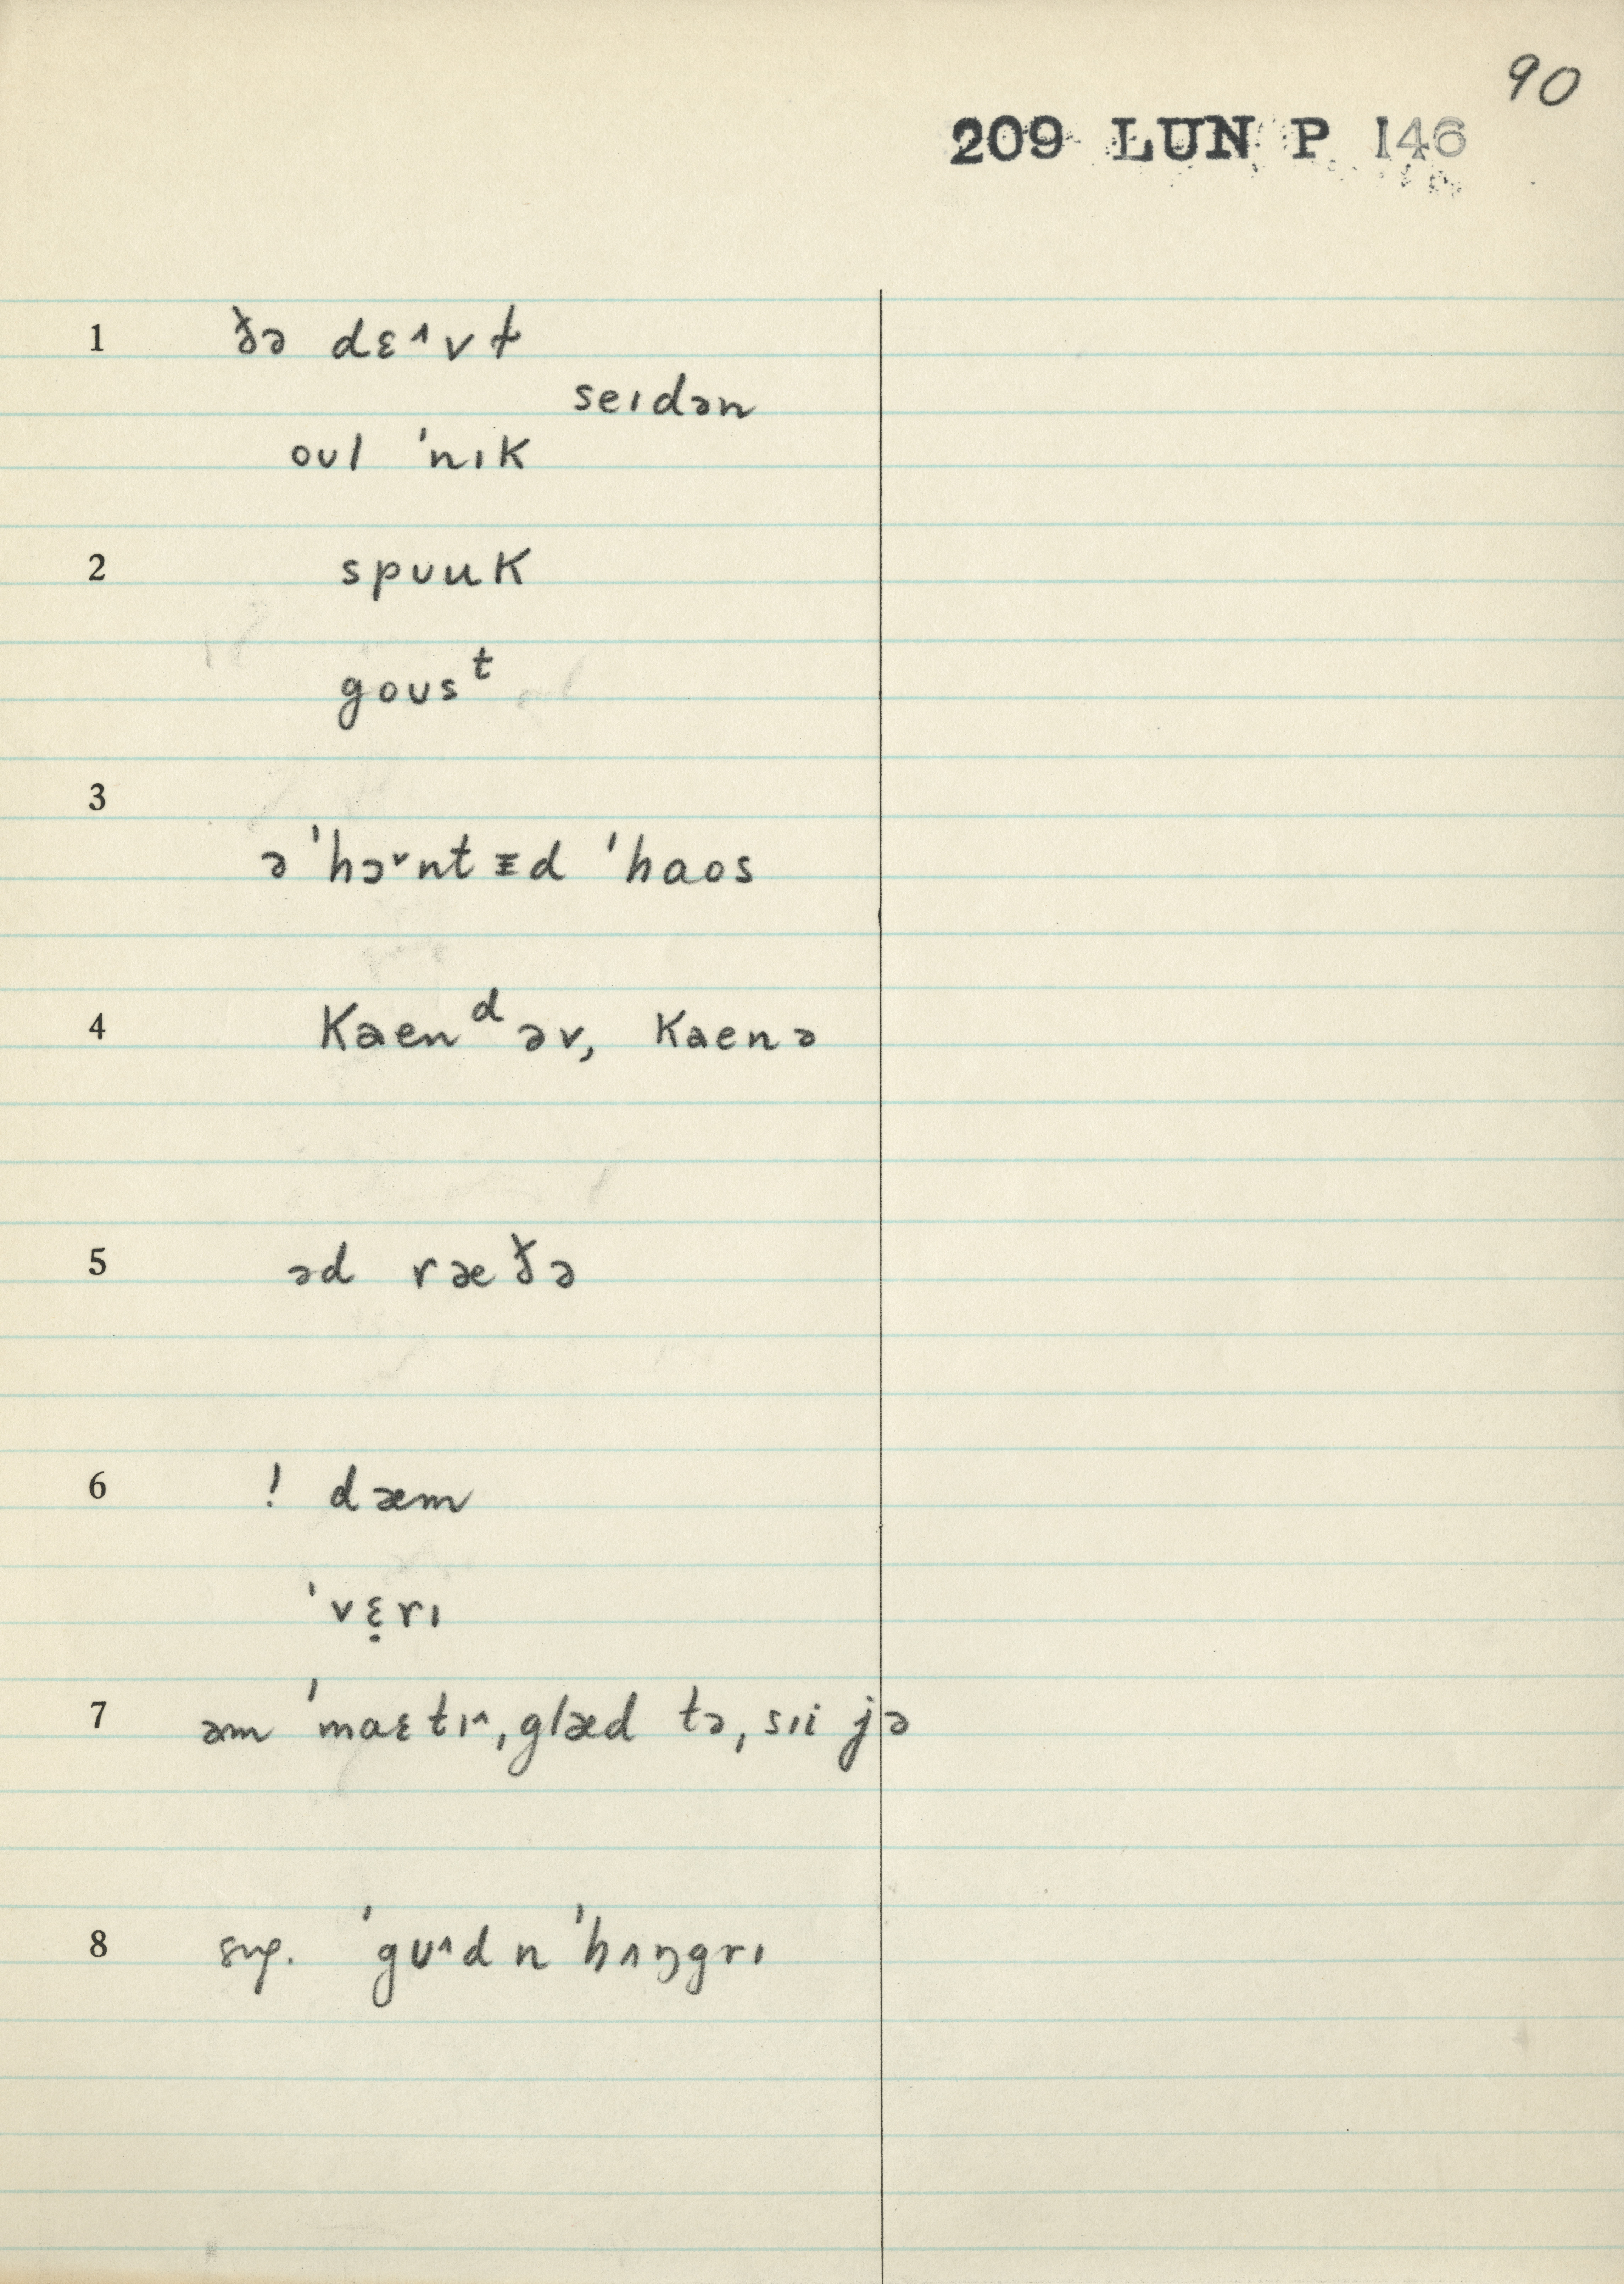 90
209 LUN P 146
1 ðə dɛ^vɫ
seɪdən
oʊl ˈnɪk
2 spʊuk
goʊsᵗ
3
ə ˈhɔ˅ntᵻd ˈhaos
4 kaenᵈəv, kaenə
5 əd ræðə
6 ! dæm
ˈvɛ̣rɪ
7 əm ˈmaɛtɪ^, glæd tə, sɪi jə
8 sug. ˈgʊ^d n ˈhʌŋgrɪ